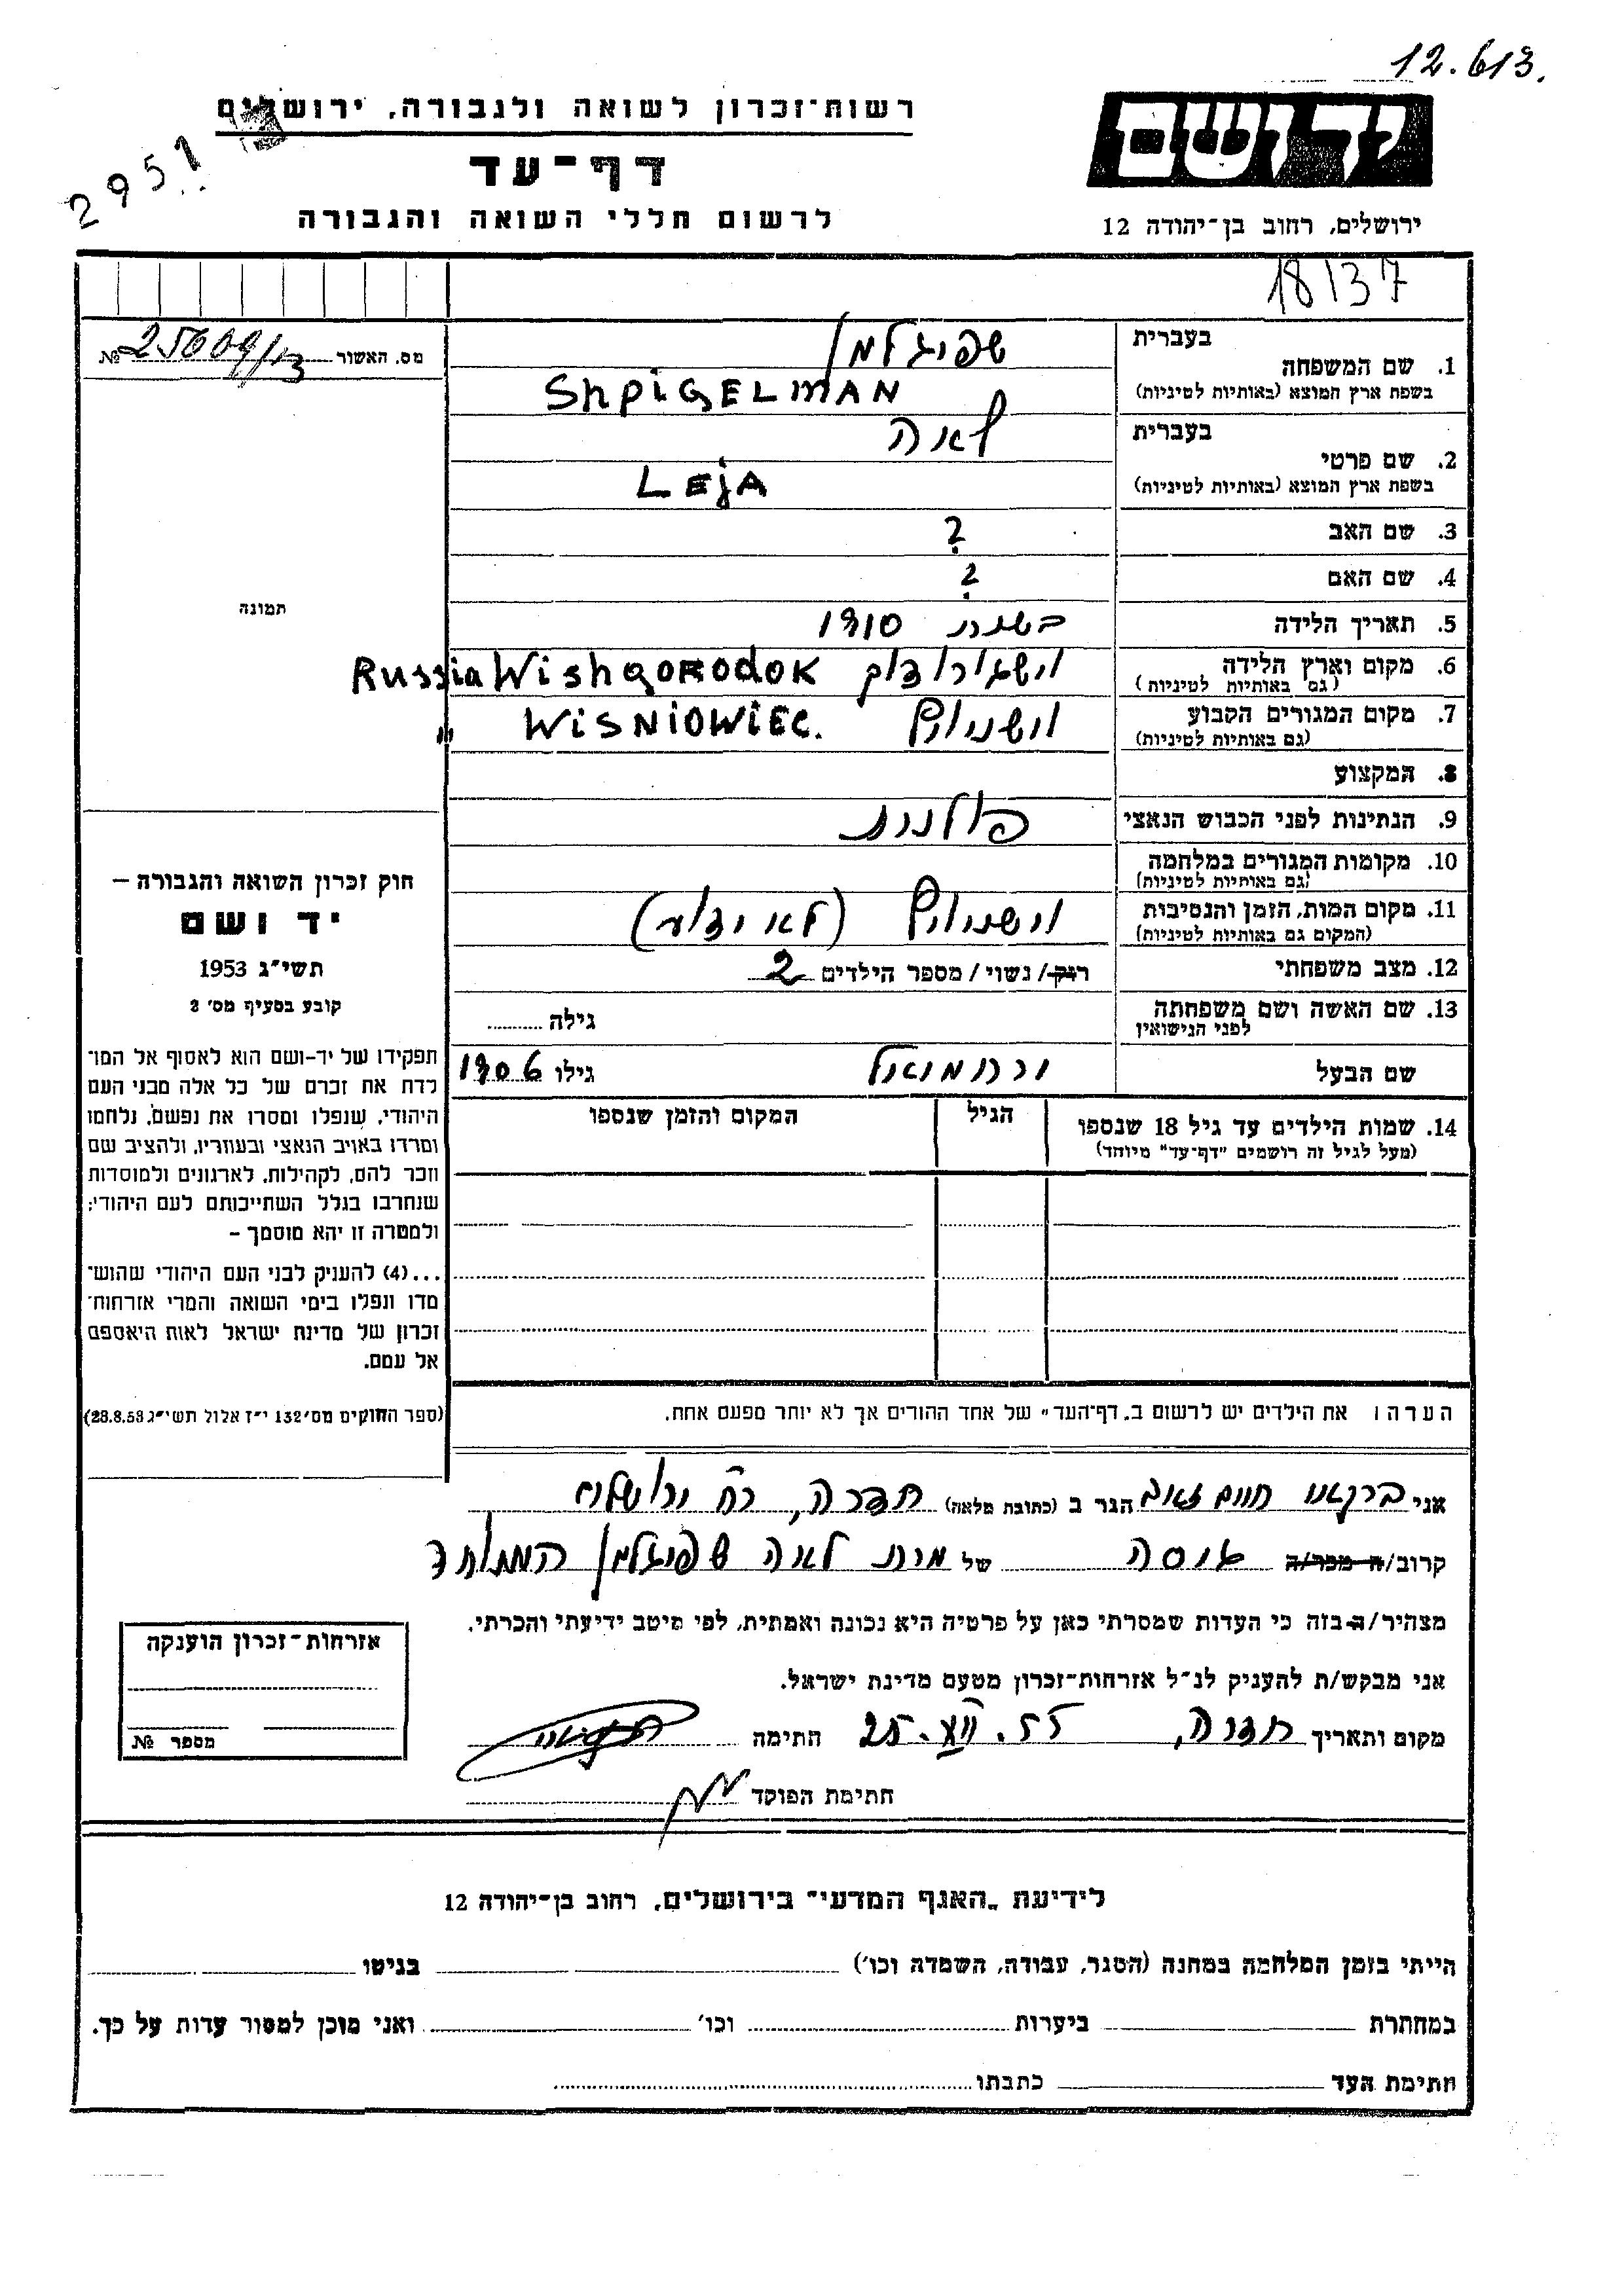 12.613.
רשות־זכרון לשואה ולגבורה, ירושלים
2951
דף־עד
לרשום חללי השואה והגבורה
יד ושם
ירושלים, רחוב בן־יהודה 12
18137
מס. האשור № 25609/13
בעברית שפיגלמן
1. שם המשפחה
בשפת ארץ המוצא (באותיות לטיניות) SHPIGELMAN
בעברית לאה
2. שם פרטי
בשפת ארץ המוצא (באותיות לטיניות) LEjA
3. שם האב ?
4. שם האם ?
תמונה
5. תאריך הלידה בשנת 1910
6. מקום וארץ הלידה (גם באותיות לטיניות) וישגורודוק Wishgorodok Russia
7. מקום המגורים הקבוע (גם באותיות לטיניות) WISNIOWIEC. "
8. המקצוע
9. הנתינות לפני הכבוש הנאצי פולנית
10. מקומות המגורים במלחמה (גם באותיות לטיניות)
11. מקום המות, הזמן והנסיבות (המקום גם באותיות לטיניות) (לא ידוע)
12. מצב משפחתי רוק/ נשוי/ מספר הילדים 2
13. שם האשה ושם משפחתה לפני הנישואין גילה
שם הבעל גילו 1906
14. שמות הילדים עד גיל 18 שנספו הגיל המקום והזמן שנספו
(מעל לגיל זה רושמים "דף־עד" מיוחד)
חוק זכרון השואה והגבורה –
יד ושם
תשי"ג 1953
קובע בסעיף מס' 2
תפקידו של יד-ושם הוא לאסוף אל המו־
לדת את זכרם של כל אלה מבני העם
היהודי, שנפלו ומסרו את נפשם, נלחמו
ומרדו באויב הנאצי ובעוזריו, ולהציב שם
וזכר להם, לקהילות, לארגונים ולמוסדות
שנחרבו בגלל השתייכותם לעם היהודי;
ולמטרה זו יהא מוסמך –
...(4) להעניק לבני העם היהודי שהוש־
מדו ונפלו בימי השואה והמרי אזרחות־
זכרון של מדינת ישראל לאות היאספם
אל עמם.
(ספר החוקים מס' 132 י"ז אלול תשי"ג 28.8.53)
הערה: את הילדים יש לרשום ב„דף־העד" של אחד ההורים אך לא יותר מפעם אחת.
אני חיים זאב הגר ב (כתובת מלאה) חדרה, רח' ירושלים
קרוב/ה מכר/ה של לאה שפיגלמן
מצהיר/ה בזה כי העדות שמסרתי כאן על פרטיה היא נכונה ואמתית, לפי מיטב ידיעתי והכרתי.
אני מבקש/ת להעניק לנ"ל אזרחות־זכרון מטעם מדינת ישראל.
מקום ותאריך חדרה, 25.VII.55 חתימה
חתימת הפוקד
אזרחות־זכרון הוענקה
מספר №
לידיעת „האגף המדעי" בירושלים, רחוב בן־יהודה 12
הייתי בזמן המלחמה במחנה (הסגר, עבודה, השמדה וכו') בגיטו
במחתרת ביערות וכו' ואני מוכן למסור עדות על כך.
חתימת העד כתבתו